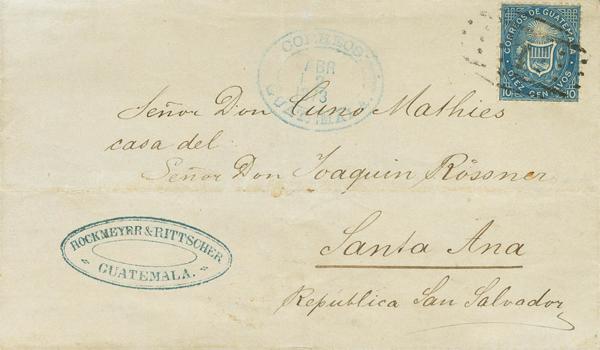 CORREOS DE GUATEMALA
10 DIEZ CENTAVOS 10
CORREOS
ABR
GUATEMALA
Señor Don Cuno Mathies
casa del
Señor Don Joaquin Rössner
Santa Ana
República San Salvador
HOCKMEYER & RITTSCHER
GUATEMALA.